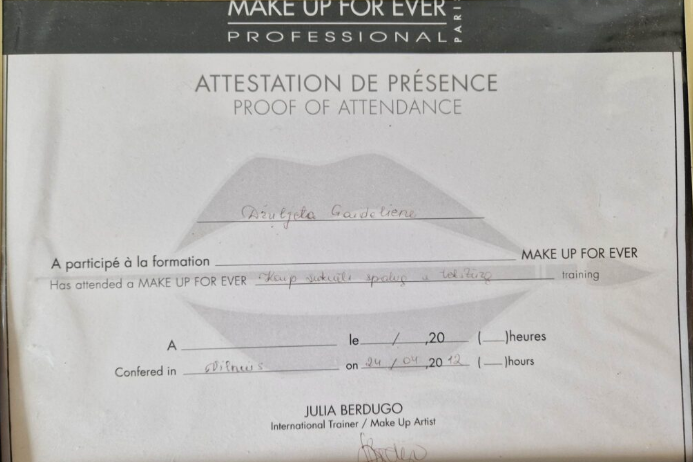 MAKE UP FOR EVER
PROFESSIONAL PARIS
ATTESTATION DE PRÉSENCE
PROOF OF ATTENDANCE
Džuljeta Gaidelienė
A participé à la formation MAKE UP FOR EVER
Has attended a MAKE UP FOR EVER Kaip sukurti spalvą ir training
A le / ,20 ( )heures
Confered in Vilnius on 24 / 04 ,20 12 ( )hours
JULIA BERDUGO
International Trainer / Make Up Artist